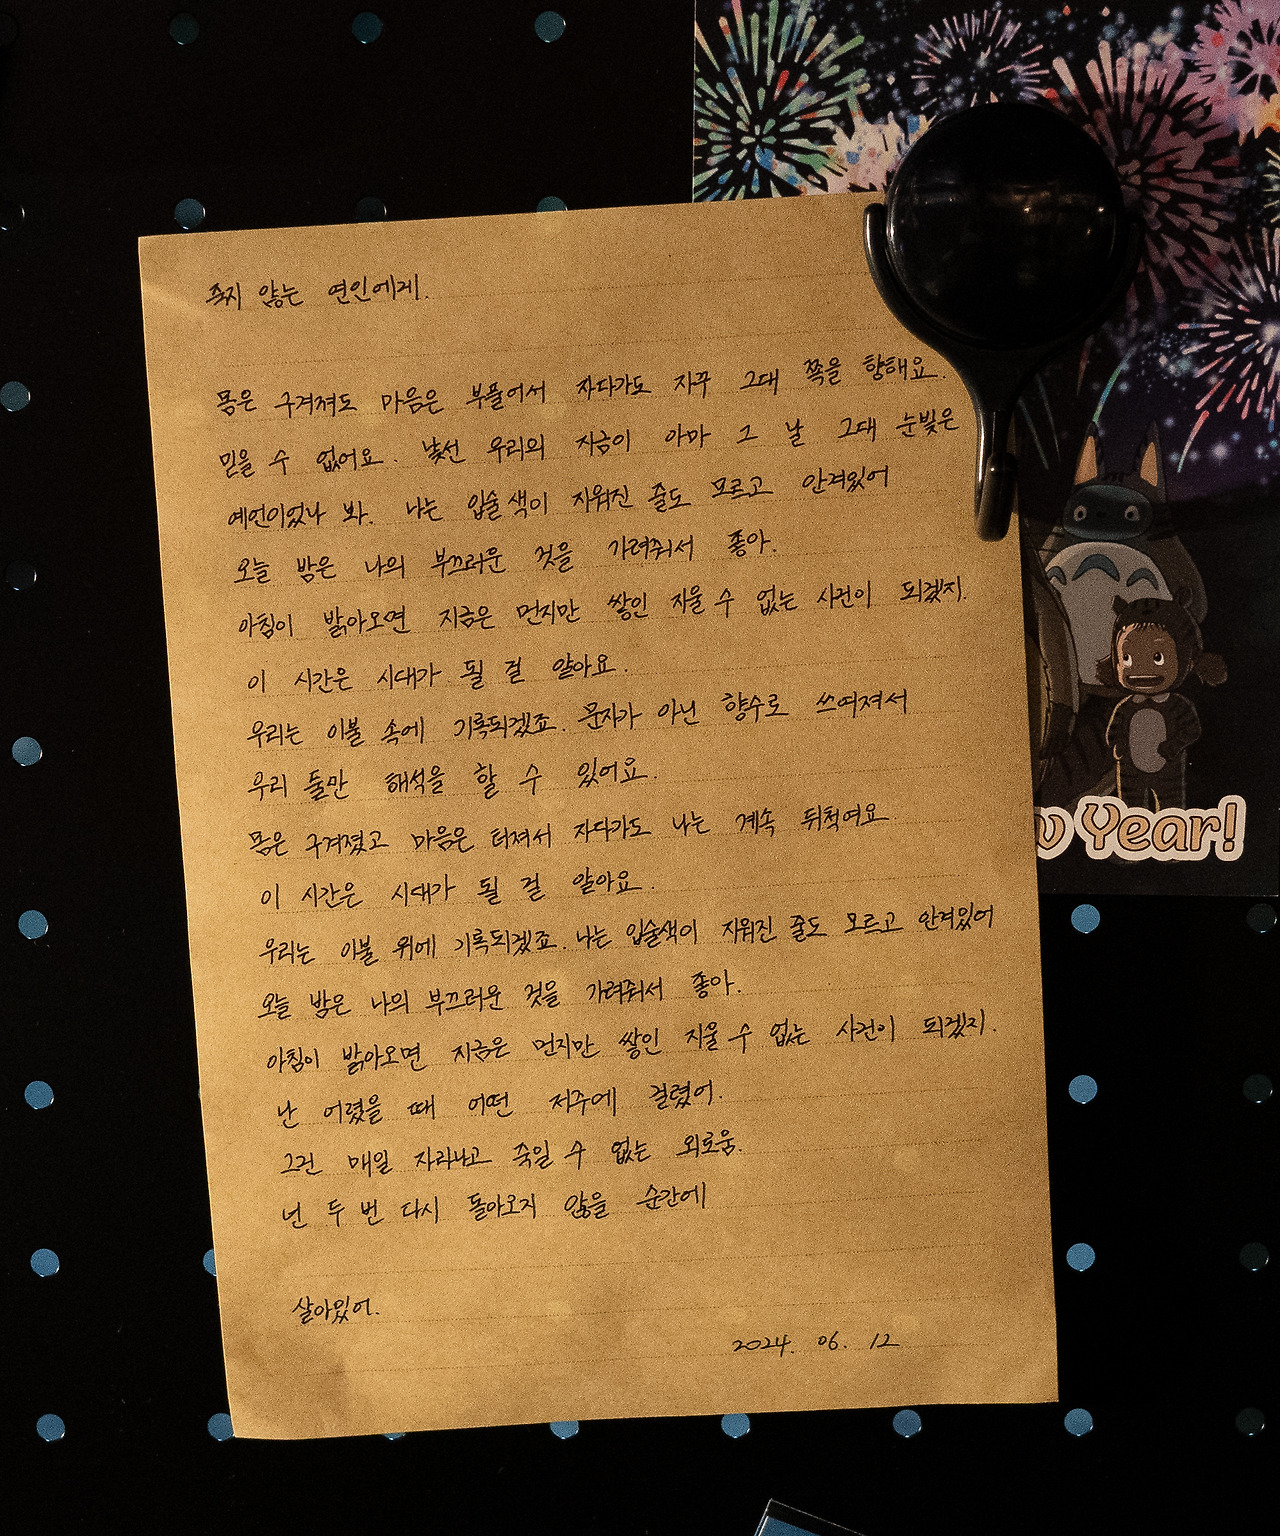 죽지 않는 연인에게.
몸은 구겨져도 마음은 부풀어서 자다가도 자꾸 그대 쪽을 향해요.
믿을 수 없어요. 낯선 우리의 지금이 아마 그 날 그대 눈빛은
예언이었나 봐. 나는 입술색이 지워진 줄도 모르고 안겨있어
오늘 밤은 나의 부끄러운 것을 가려줘서 좋아.
아침이 밝아오면 지금은 먼지만 쌓인 지울 수 없는 사건이 되겠지.
이 시간은 시대가 될 걸 알아요.
우리는 이불 속에 기록되겠죠. 문자가 아닌 향수로 쓰여져서
우리 둘만 해석을 할 수 있어요.
몸은 구겨졌고 마음은 터져서 자다가도 나는 계속 뒤척여요
이 시간은 시대가 될 걸 알아요.
우리는 이불 위에 기록되겠죠. 나는 입술색이 지워진 줄도 모르고 안겨있어
오늘 밤은 나의 부끄러운 것을 가려줘서 좋아.
아침이 밝아오면 지금은 먼지만 쌓인 지울 수 없는 사건이 되겠지.
난 어렸을 때 어떤 저주에 걸렸어.
그건 매일 자라나고 죽일 수 없는 외로움.
넌 두 번 다시 돌아오지 않을 순간에
살아있어.
2024. 06. 12
Year!